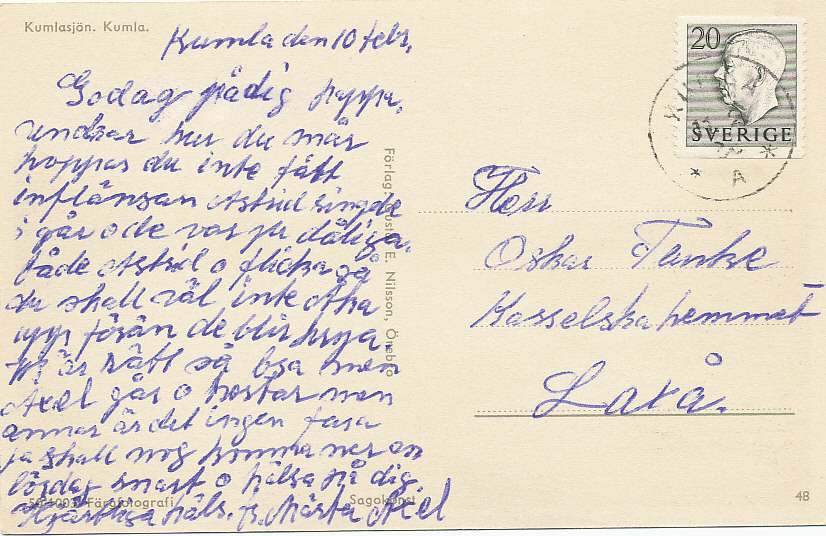 Kumlasjön. Kumla.
Kumla den 10 febr.
Godag på dig pappa.
undrar hur du mår
hoppas du inte fått
inflänsan Astrid ringde
i går o de var ju dåliga.
både Astrid o flicka ga
du skall väl inte åka
upp förän de blir bra
är rätt så bra men
Axel går o hostar men
annar är det ingen fara
ja skall nog komma ner en
lördag snart o hälsa på dig.
Hjärtliga häls. fr. Märta Axel
Färgfotografi
Sagokonst
48
Förlag E. Nilsson, Örebro
20
SVERIGE
A
Herr
Oskar
Kasselska hemmet
Laxå.